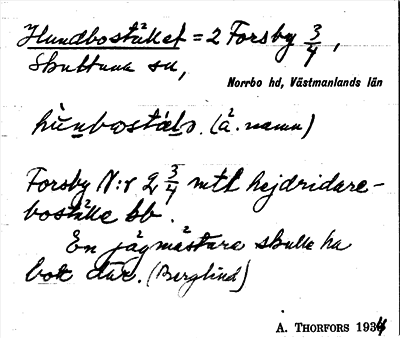 Hundbostället = 2 Forsby 3/4,
Skultuna sn,
Norrbo hd, Västmanlands län
(ä. namn)
Forsby N:r 2 3/4 mtl hejdridare-
boställe bb.
En jägmästare skulle ha
bott där. (Berglind)
A. THORFORS 1934